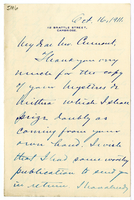 Oct. 16, 1911.
19 BRATTLE STREET,
CAMBRIDGE.
My dear Mr. Cumont,
I thank you very
much for the copy
of your
which I shall
prize doubly as
coming from your
own hand. I wish
that I had some worthy
publication to send you
in return.